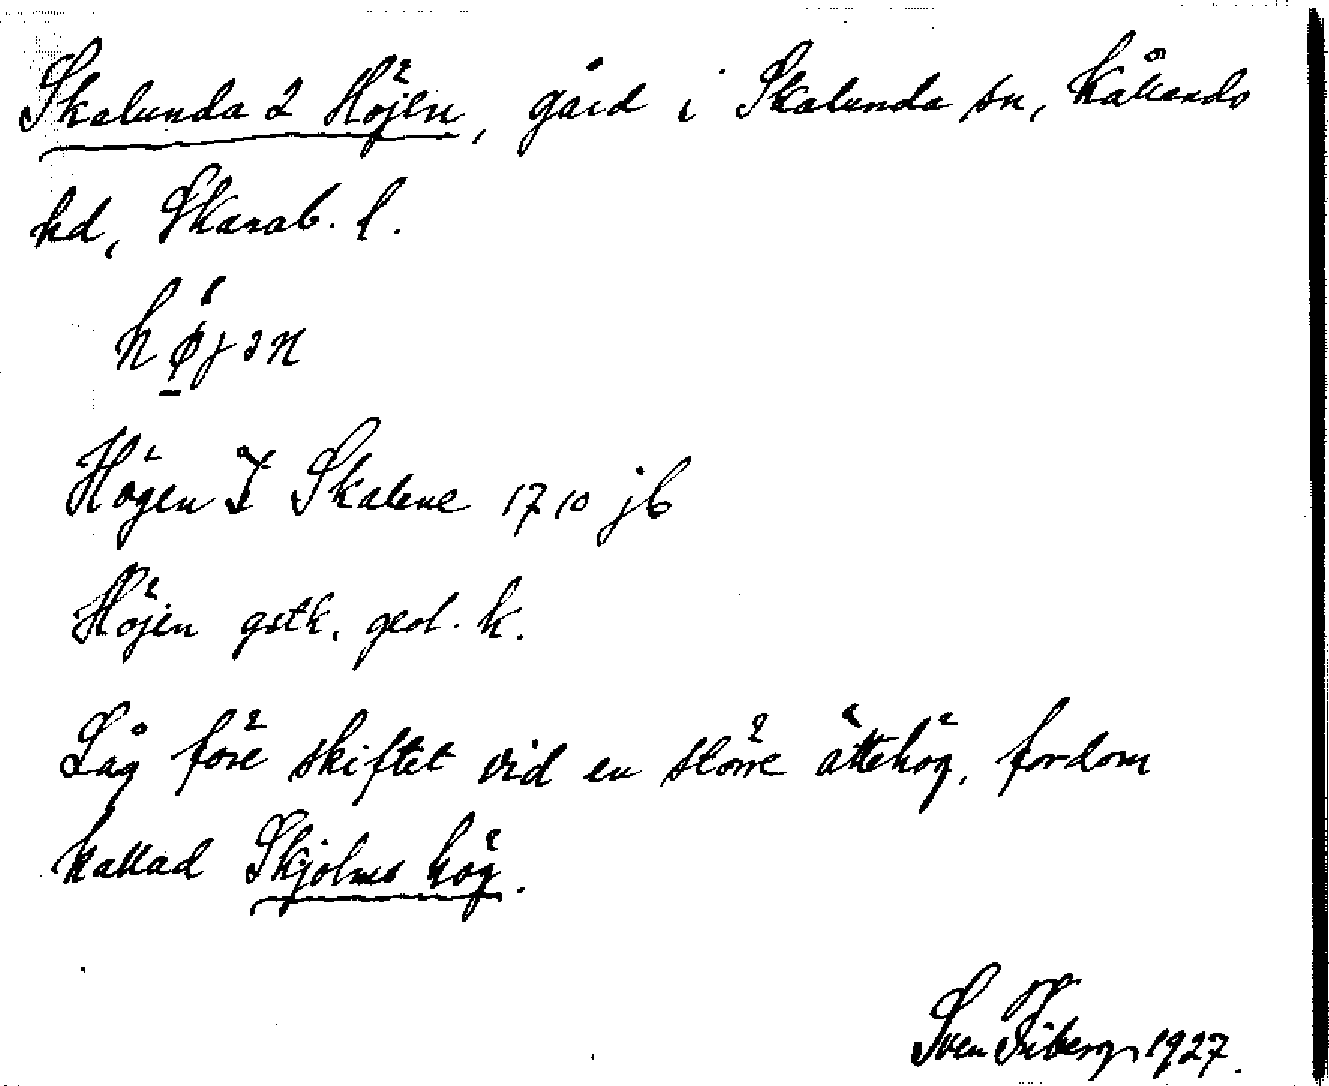 Skalunda 2 Höjen, gård i Skalunda sn, Kållands
hd, Skarab. l.
hǿ̠jən
Högen I Skalene 1710 jb
Höjen gstk. geol. k.
Låg före skiftet vid en större ättehög, fordom
kallad Skjolms hög.
Sven Friberg 1927.